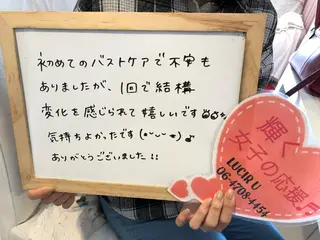 初めてのバストケアで不安も
ありましたが、1回で結構
変化を感じられて嬉しいです
気持ちよかったです(*ᵕᴗᵕ*)♪
ありがとうございました!!
輝く
女子の応援
LUCIR U
06-4708-4454